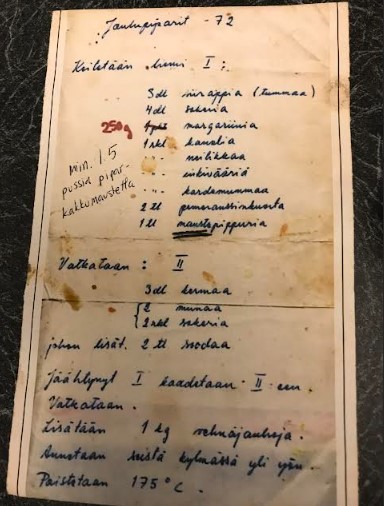 Joulupiparit -72
Keitetään liemi I :
3 dl siirappia (tummaa)
4 dl sokeria
250g margariinia
1 rkl kanelia
-"- neilikkaa
-"- inkivääriä
-"- kardemummaa
2 tl pomeranssinkuorta
1 tl maustepippuria
Min. 1.5
pussia pipar-
kakkumaustetta
Vatkataan : II
3 dl kermaa
2 munaa
2 rkl sokeria
johon lisät. 2 tl soodaa
Jäähtynyt I kaadetaan II een.
Vatkataan.
Lisätään 1 kg vehnäjauhoja.
Annetaan seistä kylmässä yli yön.
Paistetaan 175°C.